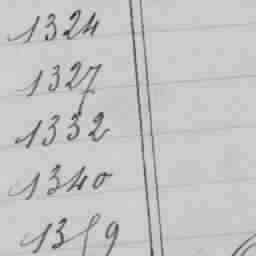 1324
1327
1332
1340
1359